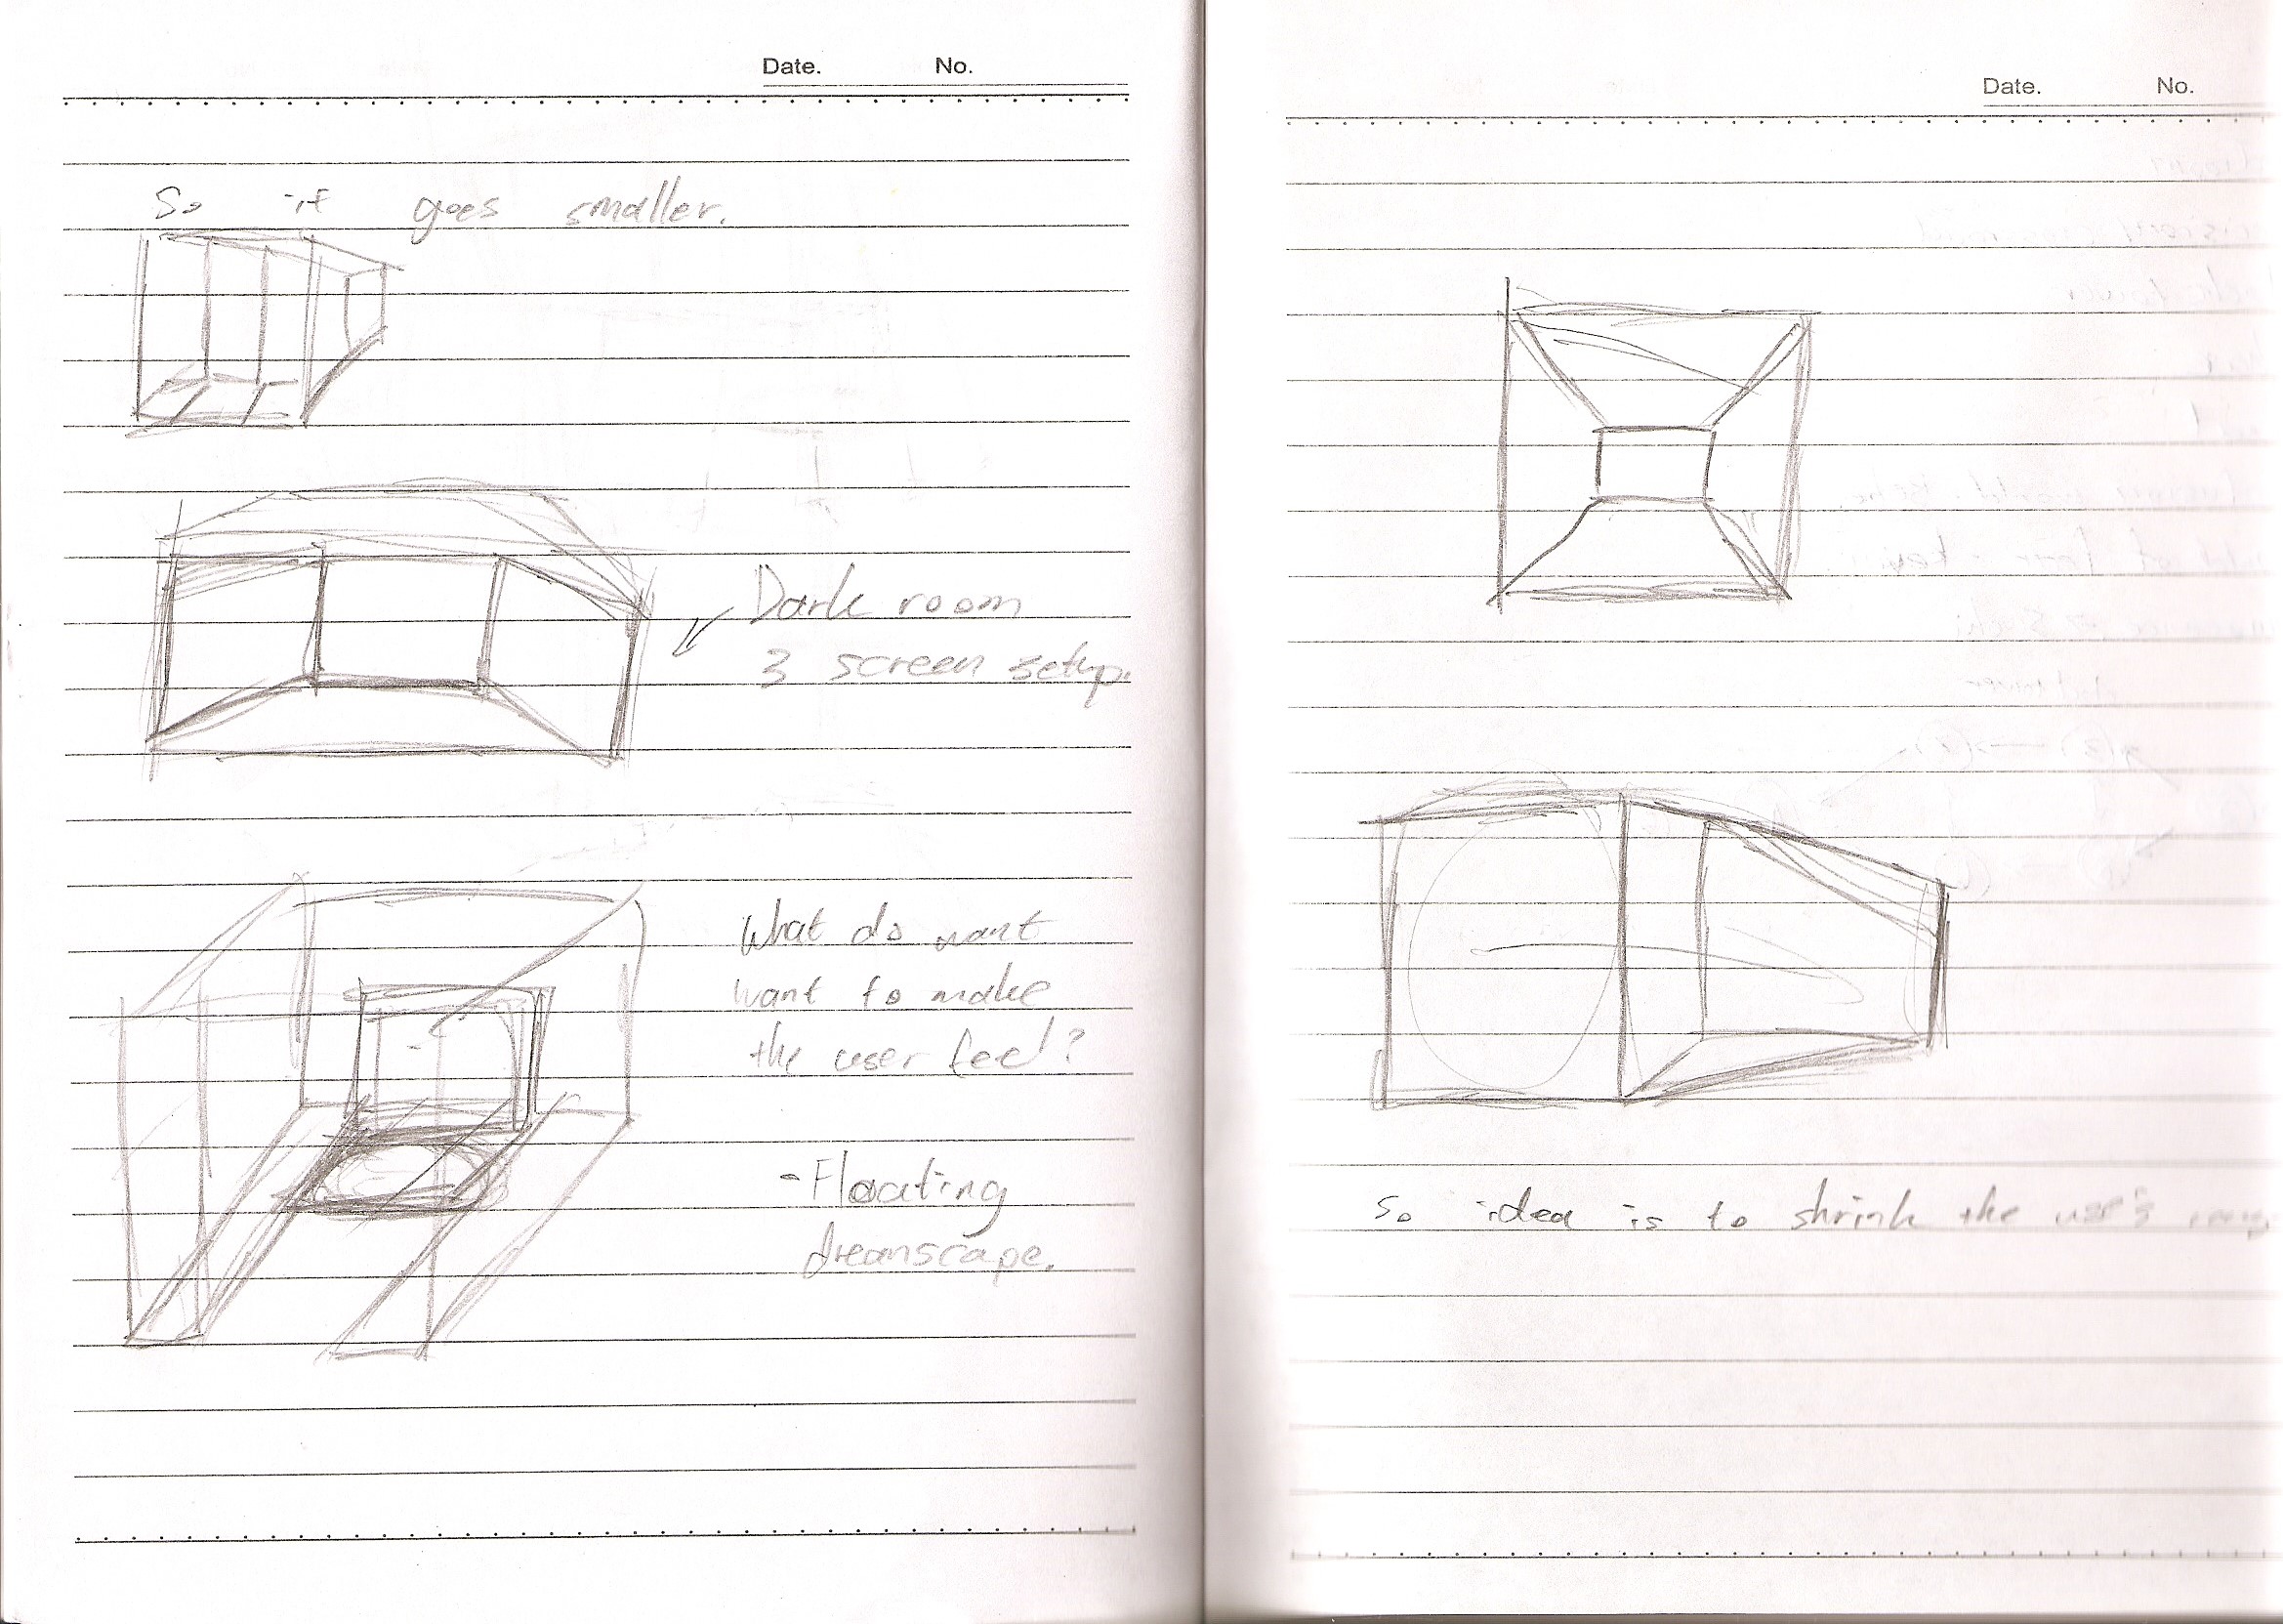 Date. No.
So it goes smaller.
Dark room
3 screen setup.
What do want
want to make
the user feel?
- Floating
dreamscape.
Date. No.
So idea is to shrink the